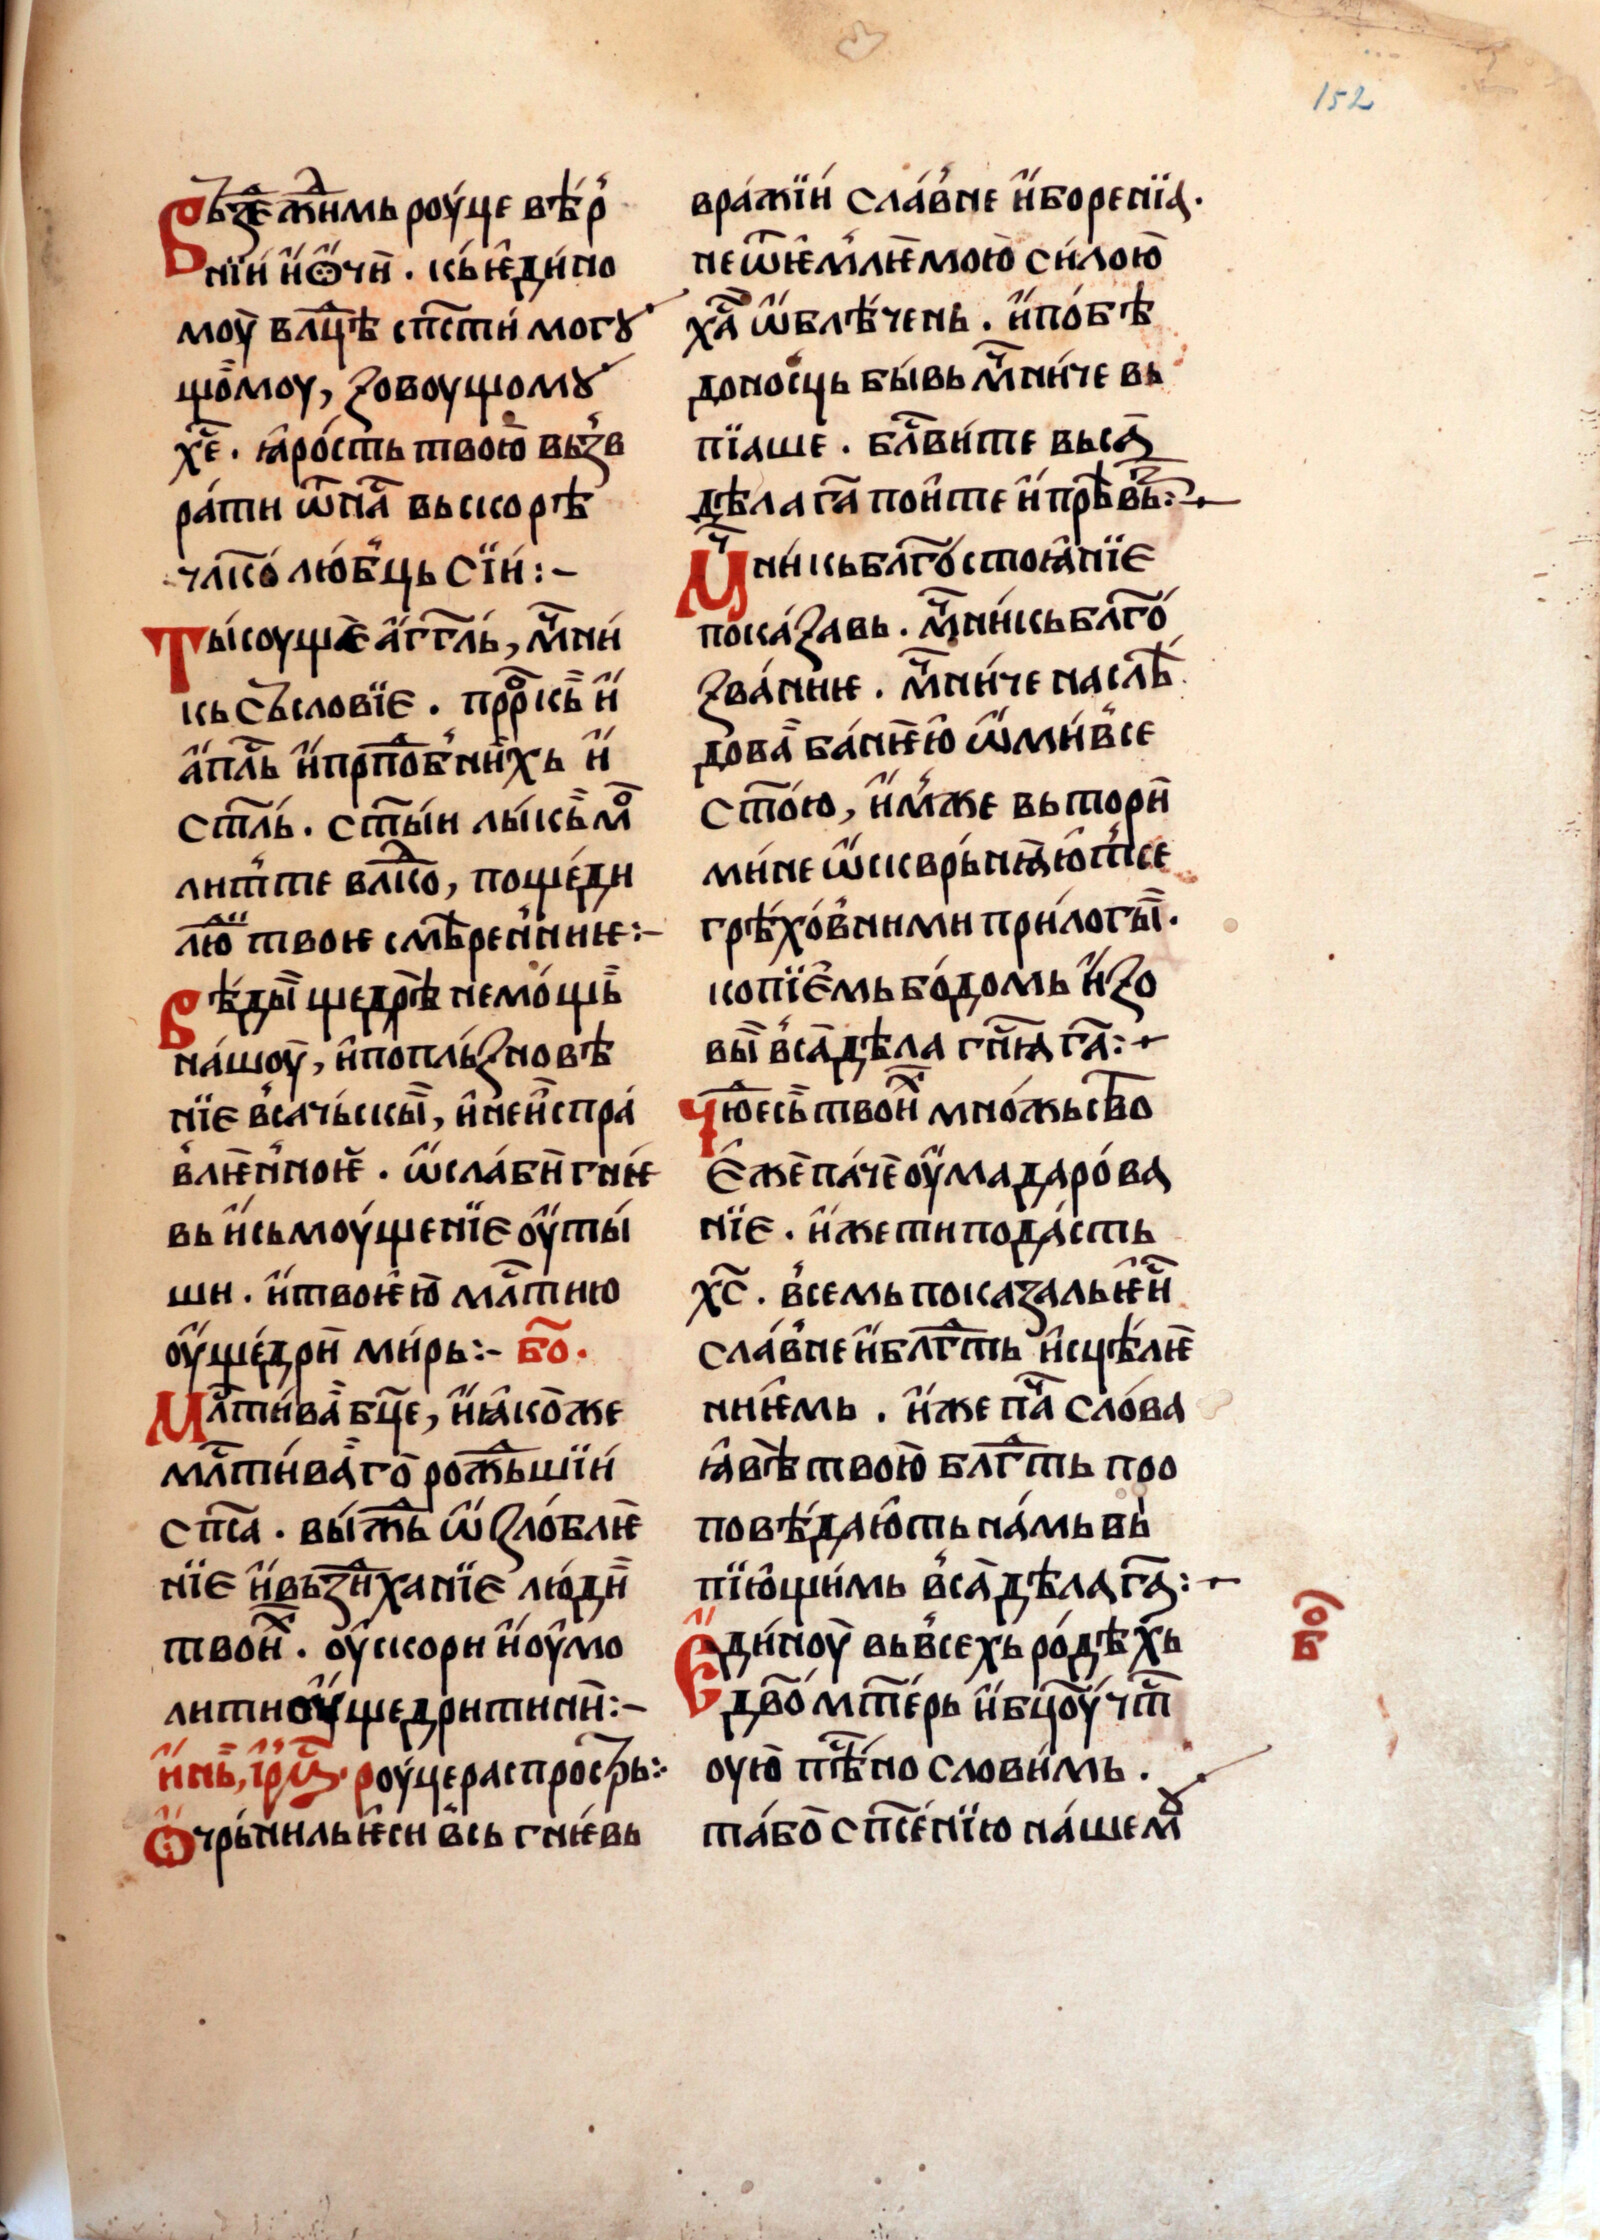 152
Въздежимь роуце вѣр
нїи и ѡчи . кь ѥдино
моу влцѣ спсти могꙋ
щомоу, зовоущомꙋ
хе . ꙗрость твою възв
рати ѿ на въскорѣ
члколюбць сїи :–
Тысоуще аггль, мчни
кь съсловїе . пррокь и
апль и прпобнихь и
стль . стыи лыкь мо
литте влко, пощеди
лю твоѥ смѣренниѥ :–
Вѣды щедрѣ немощь
нашоу, и попльзновѣ
нїе всачьскы, и неиспра
влѥнноѥ . ѡслаби гнѥ
вь и сьмоущенїе оуты
ши . и твоѥю млтию
оущедри мирь :– бо .
Млтива бце, и ꙗкоже
млтиваго рожьшїи
спса . выжь ѡзлоблѥ
нїе и въздиханїе люди
твои . оускори и оумо
лити оущедрити ни :–
и нь, ірмⷭ . роуце распростръ :
Очрьниль ѥси всь гнѥвь
вражїи славне и боренїа .
не ѿѥмлѥмою силою
ха ѡблѣчень . и побѣ
доносць бывь мчниче вь
пїаше . блвите вьса
дѣла га поите и прѣвь :
Мчникь благостоꙗнїе
показавь . мчникь благо
званиѥ . мчниче наслѣ
дова банѥю ѡми все
стою, имже втори
ми не ѡскврьнꙗют се
грѣховними прилогы .
копїемь бодомь и зо
вы вса дѣла гнꙗ га :
Чюесь твои множьство
еже паче оума дарова
нїе . иже ти подасть
хс . всемь показаль ѥи
славне и блгть исцѣлѥ
ниѥмь . иже па слова
ꙗвѣ твою блгть про
повѣдають намь вь
пїющимь вса дѣла га :
Единоу вь всехь родѣхь
дво мтерь и бцоу чт
оую пѣно словимь .
та бо спсенїю нашемꙋ
бо